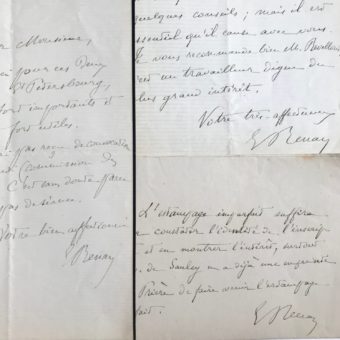 Monsieur,
pour ces deux
St Pétersbourg,
fort importants et
fort utiles.
pas reçu de convocation
Commission des
C'est sans doute
pas de séance.
Votre bien affectionné
E. Renan
quelques conseils ; mais il est
essentiel qu'il cause avec vous.
Je vous recommande bien M.
c'est un travailleur digne de
plus grand intérêt.
Votre très affectionné
E. Renan
L'estampage imparfait suffira
constater l'identité de l'inscrip
et en montrer l'intérêt, surtout
de Saulcy en a déjà une
Prière de faire venir l'estampage
E. Renan